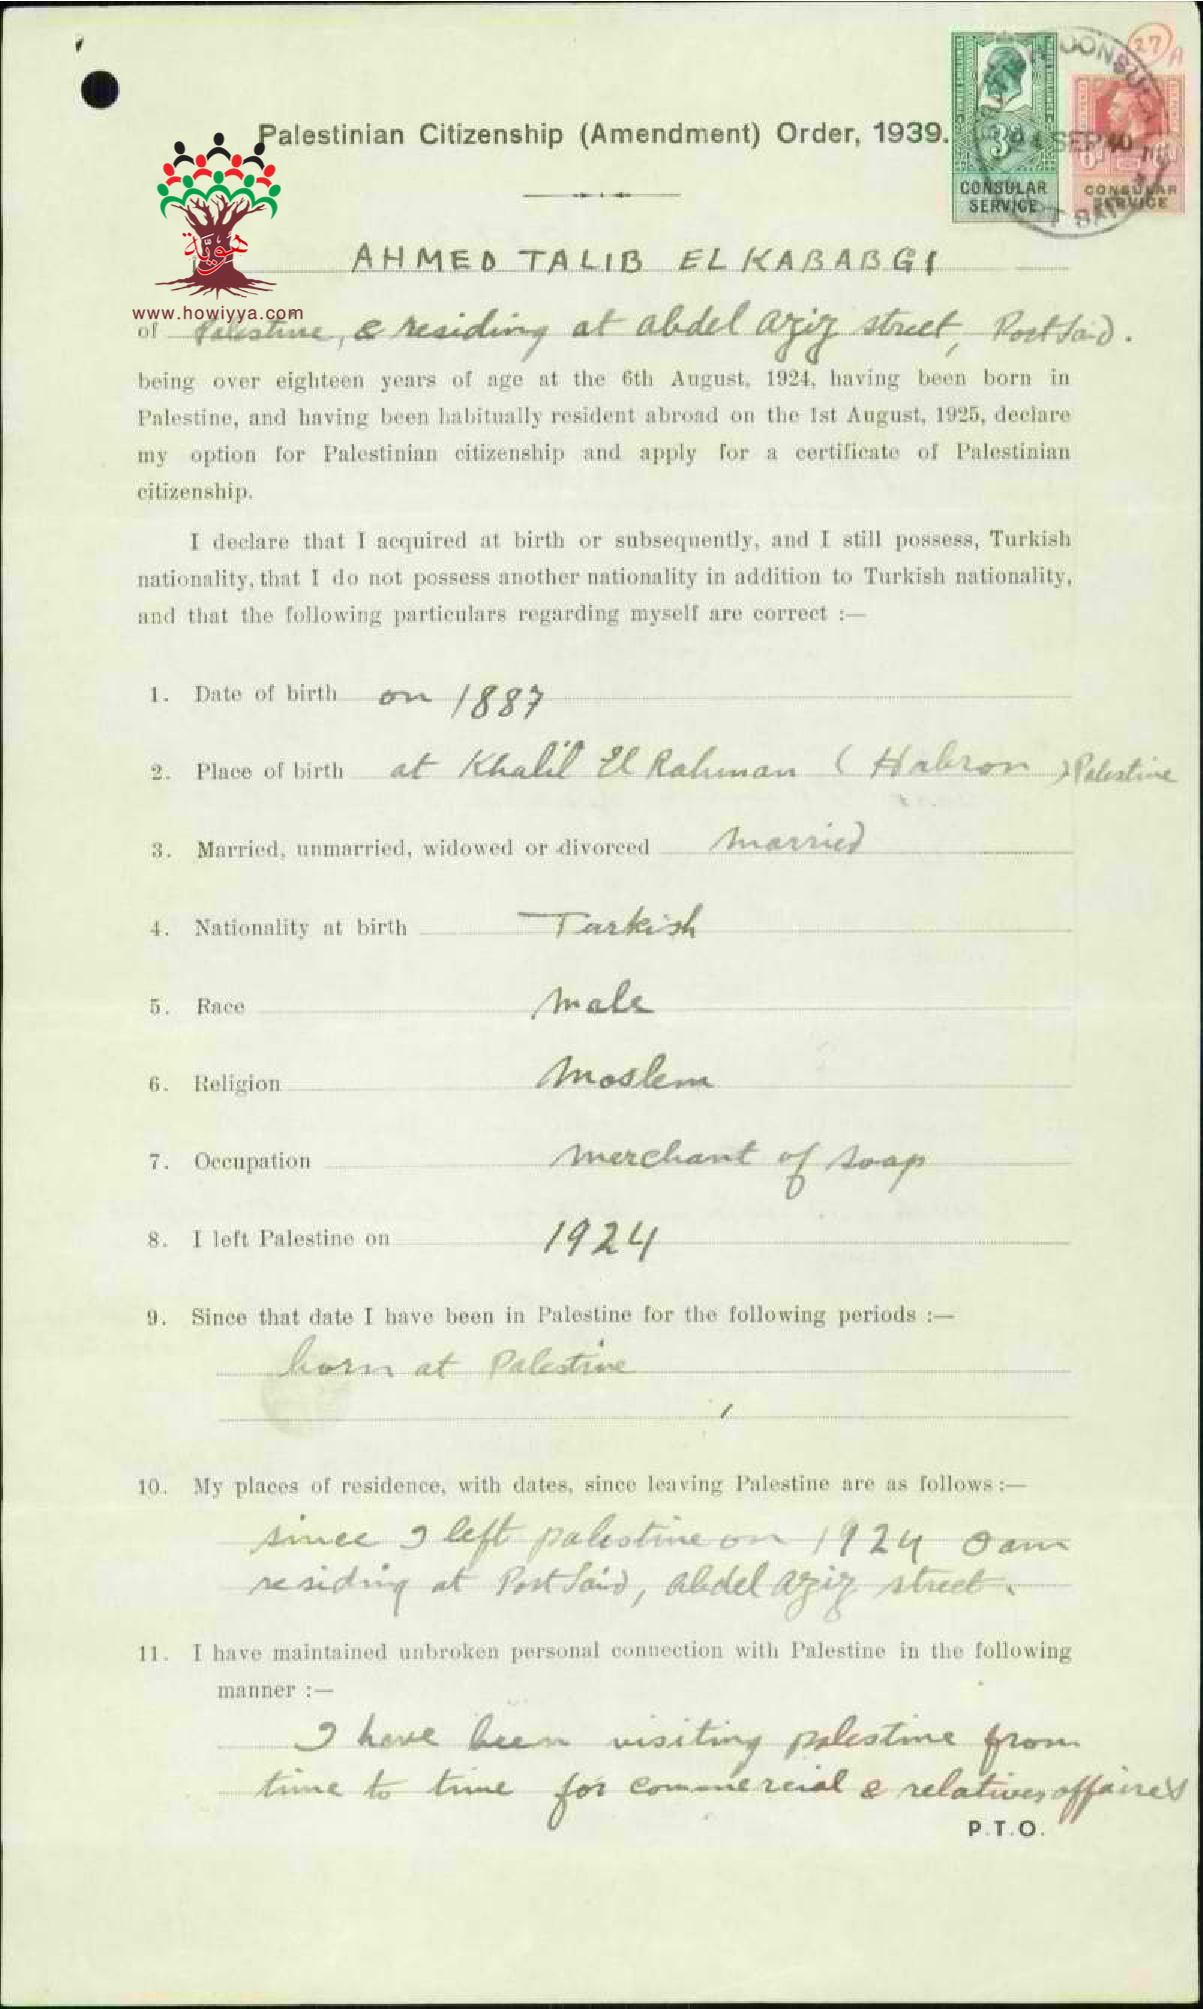 27 A
Palestinian Citizenship (Amendment) Order, 1939.
CONSULAR SERVICE
CONSULAR SERVICE
SEP 40
هوية
www.howiyya.com
AHMED TALIB EL KABABGI
of Palestine, & residing at abdel aziz street, Port Said.
being over eighteen years of age at the 6th August, 1924, having been born in
Palestine, and having been habitually resident abroad on the 1st August, 1925, declare
my option for Palestinian citizenship and apply for a certificate of Palestinian
citizenship.
I declare that I acquired at birth or subsequently, and I still possess, Turkish
nationality, that I do not possess another nationality in addition to Turkish nationality,
and that the following particulars regarding myself are correct :—
1. Date of birth on 1887
2. Place of birth at Khalil El Rahman (Habron) Palestine
3. Married, unmarried, widowed or divorced married
4. Nationality at birth Turkish
5. Race male
6. Religion Moslem
7. Occupation merchant of soap
8. I left Palestine on 1924
9. Since that date I have been in Palestine for the following periods :—
born at Palestine
10. My places of residence, with dates, since leaving Palestine are as follows :—
since I left palestine on 1924 I am
residing at Port Said, abdel aziz street.
11. I have maintained unbroken personal connection with Palestine in the following
manner :—
I have been visiting palestine from
time to time for commercial & relatives affaires
P.T.O.